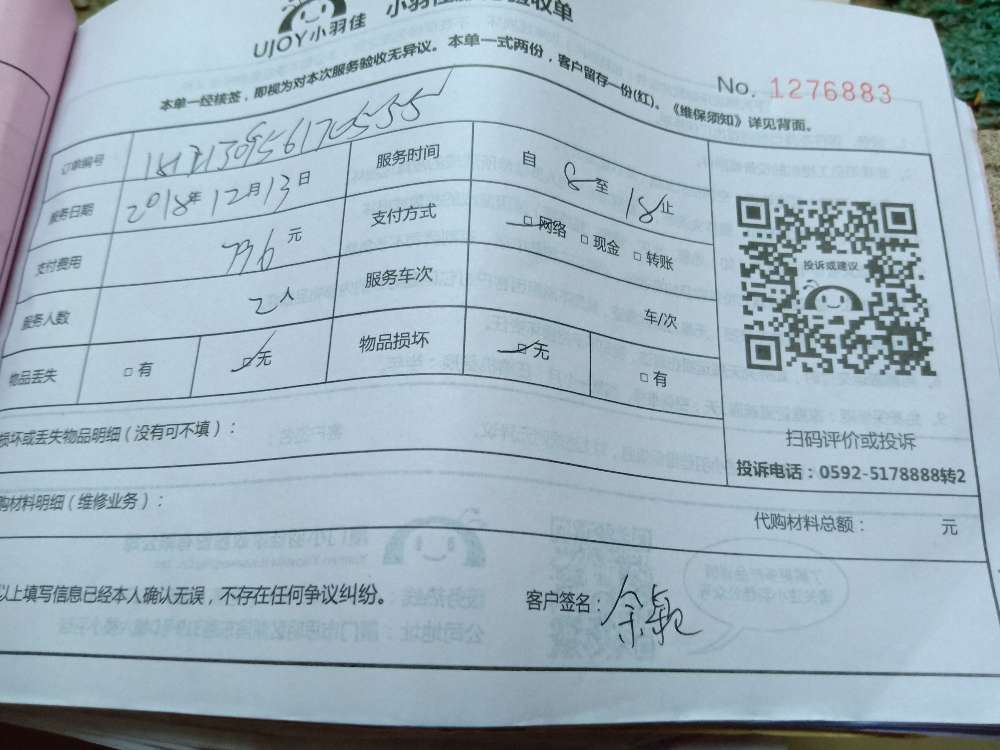 UJOY小羽佳 小羽佳服务验收单
No. 1276883
本单一经核签，即视为对本次服务验收无异议。本单一式两份，客户留存一份(红)。《维保须知》详见背面。
订单编号
服务时间 自 8 至 18 止
服务日期 2018年 12月 13日
支付方式 □ 网络 □ 现金 □ 转账
支付费用 796 元
服务车次 车/次
服务人数 2人
物品丢失 □ 有 □ 无 物品损坏 □ 无 □ 有
投诉或建议
扫码评价或投诉
投诉电话：0592-5178888转2
损坏或丢失物品明细（没有可不填）：
购材料明细（维修业务）：
代购材料总额： 元
以上填写信息已经本人确认无误，不存在任何争议纠纷。
客户签名：余颖